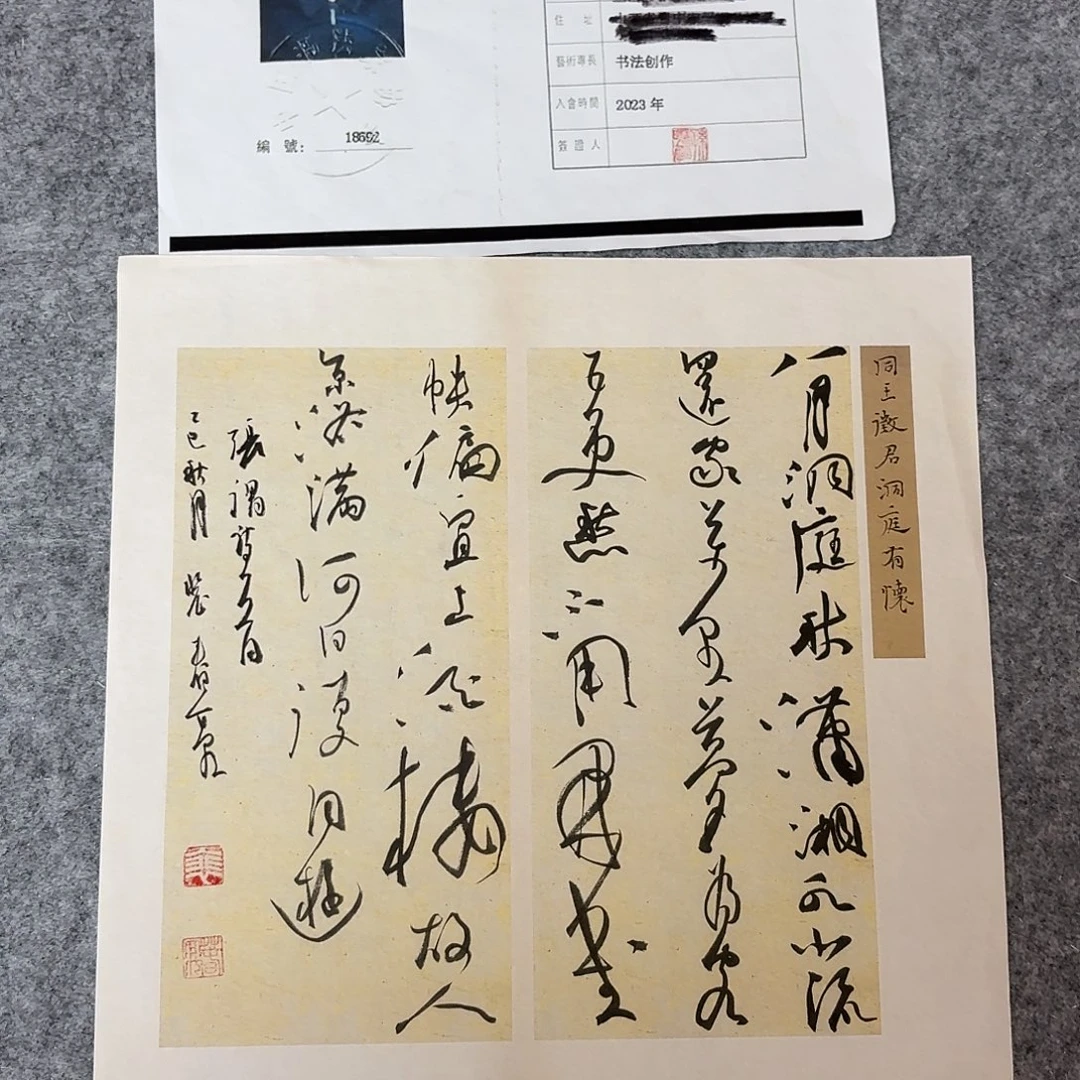 住 址
藝術專長 书法创作
入會時間 2023 年
簽證人
編 號: 18692
同王徵君洞庭有懷
八月洞庭秋瀟湘水北流
還家萬里夢為客
五更愁不用開書
帙偏宜上酒樓故人
京洛滿何日復同遊
張謂詩一首
乙巳秋月